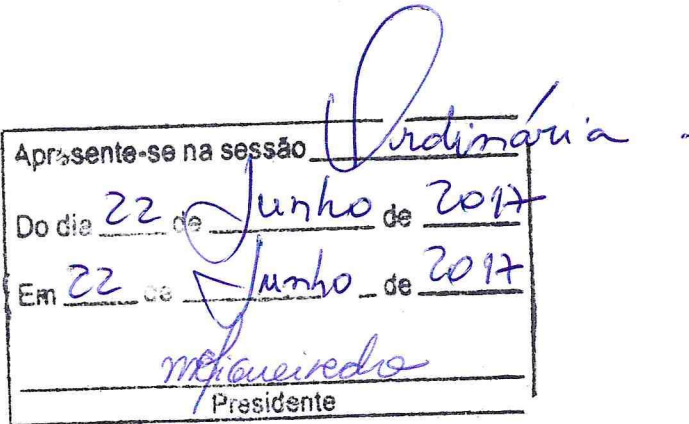 Apresente-se na sessão Ordinária
Do dia 22 de Junho de 2017
Em 22 de Junho de 2017
mfigueiredo
Presidente